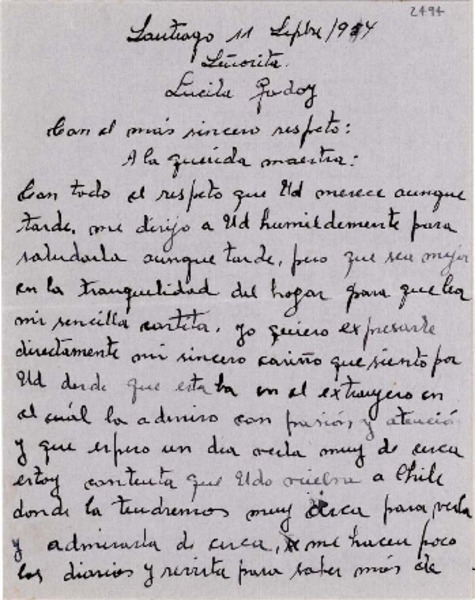 2494
Santiago 11 Sepbre /954
Señorita.
Lucila Godoy
Con el más sincero respeto:
A la querida maestra:
Con todo el respeto que Ud merece aunque
tarde, me dirijo a Ud humildemente para
saludarla aunque tarde, pero que sea mejor
en la tranquilidad del hogar para que lea
mi sencilla cartita, yo quiero expresarle
directamente mi sincero cariño que siento por
Ud desde que estaba en el extranjero en
el cuál la admiro con pasión y atención
y que espero un dia verla muy de cerca
estoy contenta que Ud vuelva a Chile
donde la tendremos muy cerca para verla
y admirarla de cerca, me hacen poco
los diarios y revista para saber más de